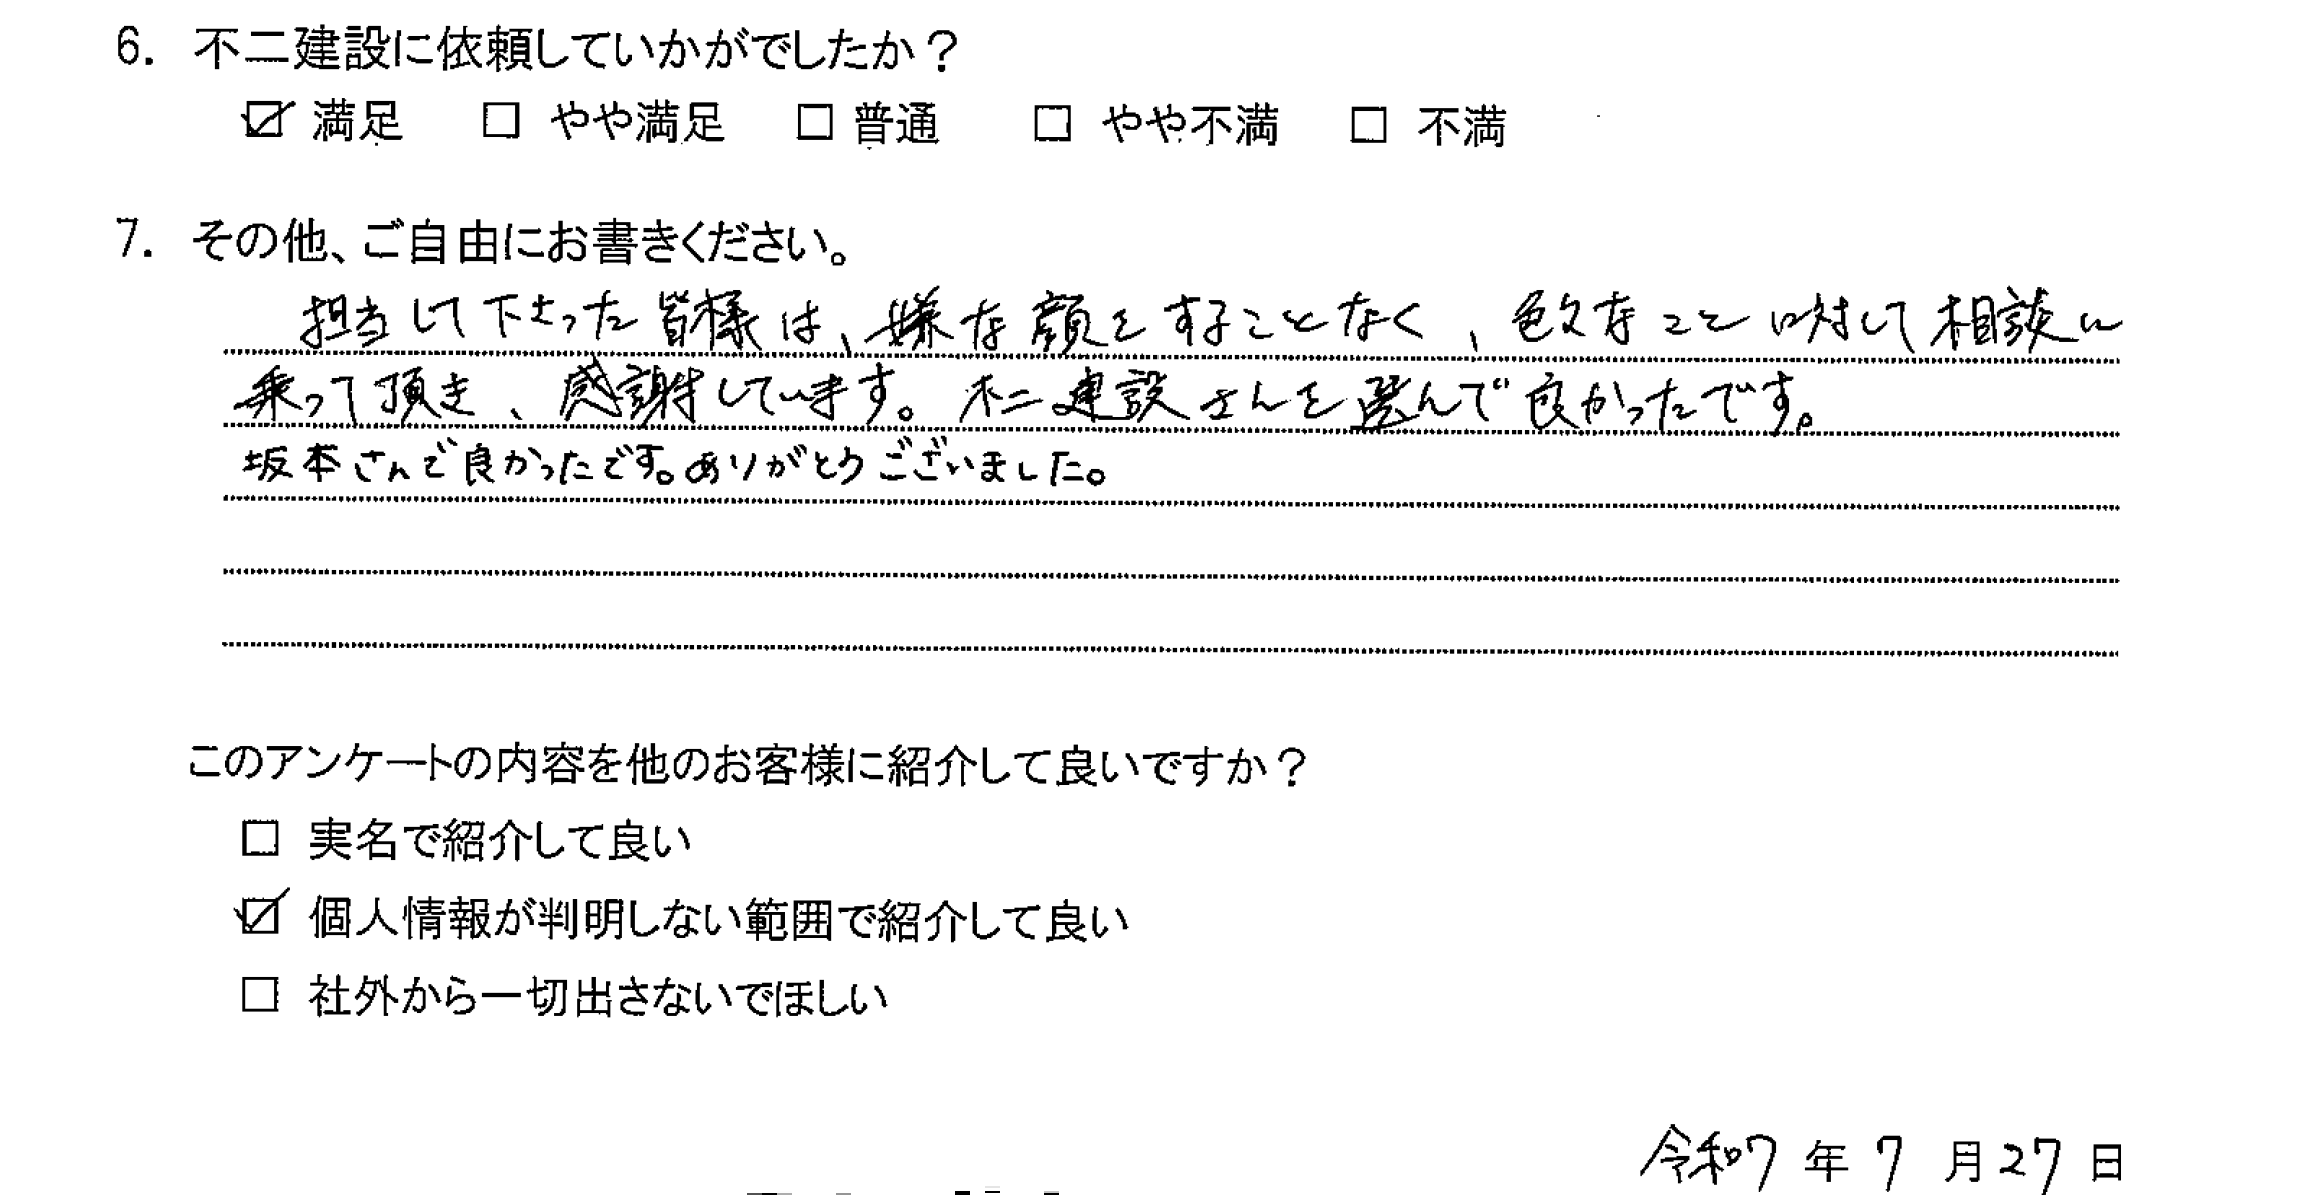 6. 不二建設に依頼していかがでしたか？
☑ 満足 □ やや満足 □ 普通 □ やや不満 □ 不満
7. その他、ご自由にお書きください。
担当して下さった皆様は、嫌な顔をすることなく、色々なことに対して相談に
乗って頂き、感謝しています。不二建設さんを選んで良かったです。
坂本さんで良かったです。ありがとうございました。
このアンケートの内容を他のお客様に紹介して良いですか？
□ 実名で紹介して良い
☑ 個人情報が判明しない範囲で紹介して良い
□ 社外から一切出さないでほしい
令和7年7月27日